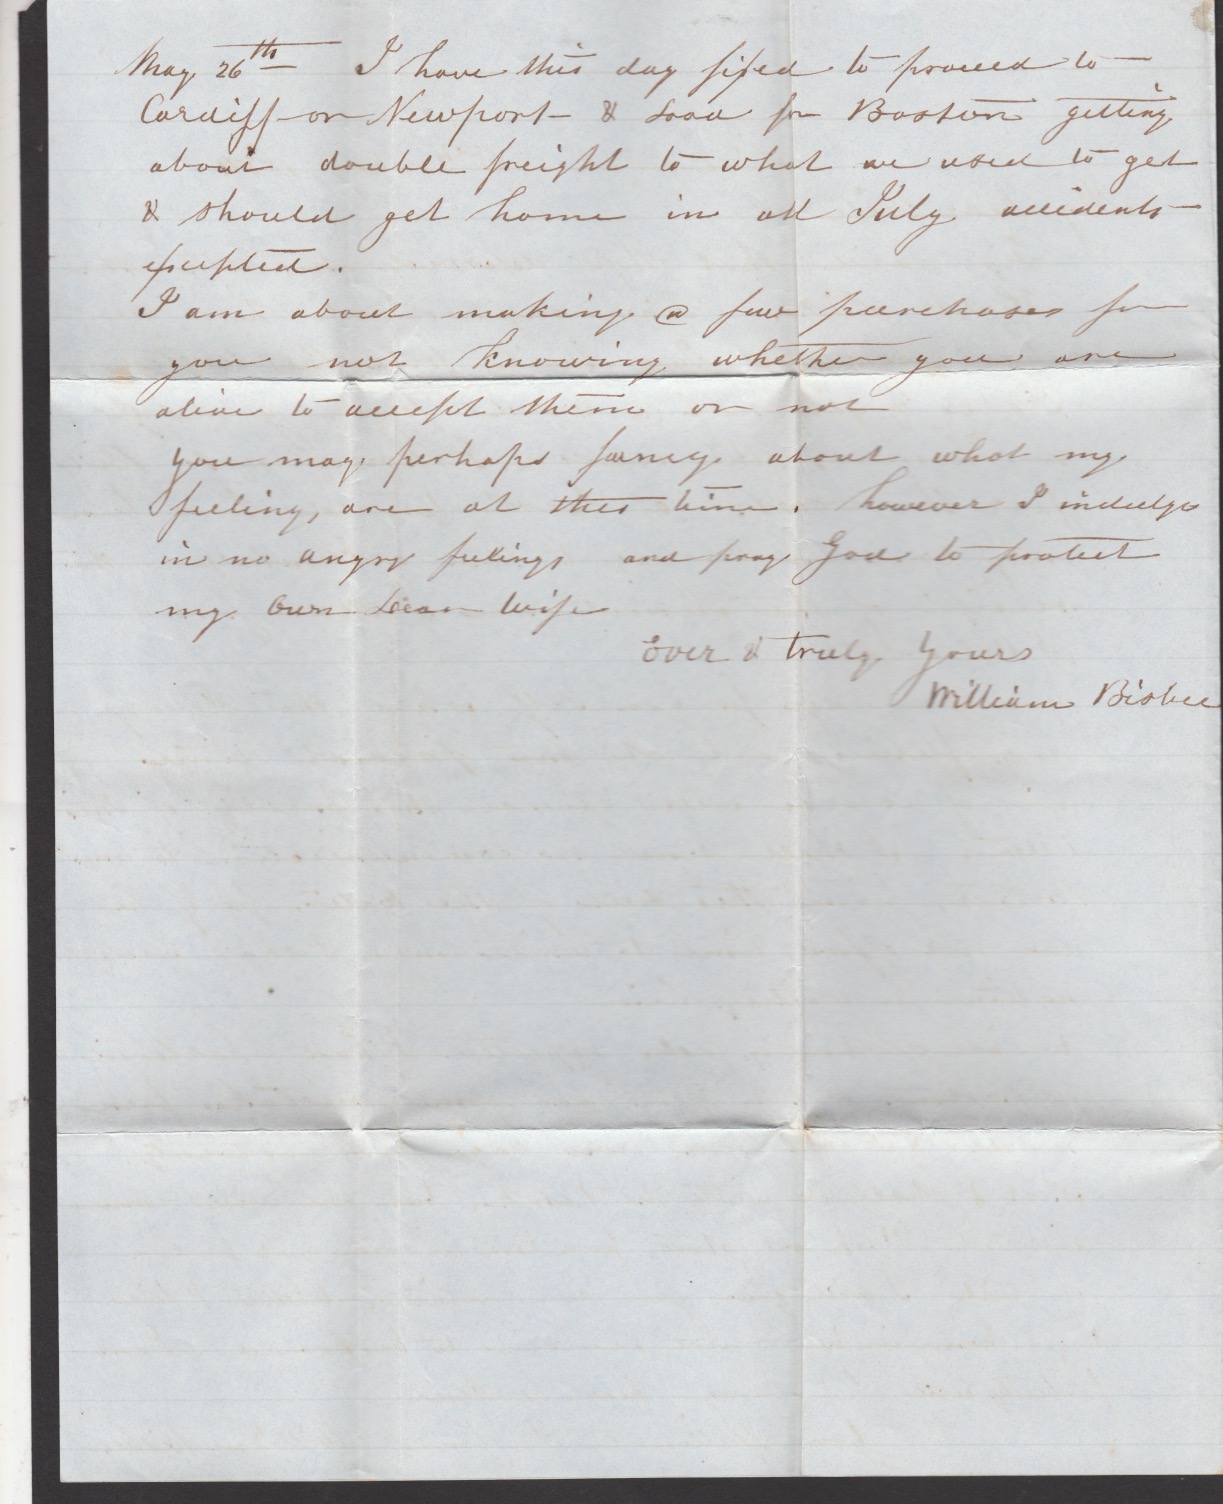 May 26th I have this day fixed to proceed to
Cardiff or Newport & Load for Boston getting
about double freight to what we used to get
& should get home in all July accidents
excepted.
I am about making a few purchases for
you not knowing whether you are
alive to accept them or not
you may perhaps fancy about what my
feeling, are at this time. however I indulge
in no angry feelings and pray God to protect
my Own Dear Wife
Ever & truly Yours
William Bisbee